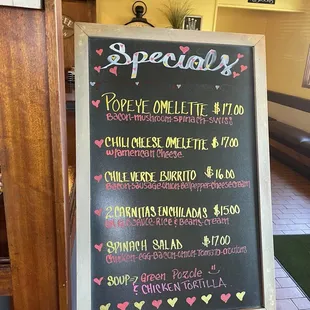 Specials
POPEYE OMELETTE $17.00
BACON-MUSHROOM-SPINACH-SWISS
CHILI CHEESE OMELETTE $17.00
W/AMERICAN CHEESE
CHILE VERDE BURRITO $16.00
BACON-SAUSAGE-ONION-BELLPEPPER-CHEESE-CREAM
2 CARNITAS ENCHILADAS $15.00
SAUCE-RICE & BEANS-CREAM
SPINACH SALAD $17.00
CHICKEN-EGG-BACON-ONION-TOMATO
SOUP? Green Pozole
& CHICKEN TORTILLA